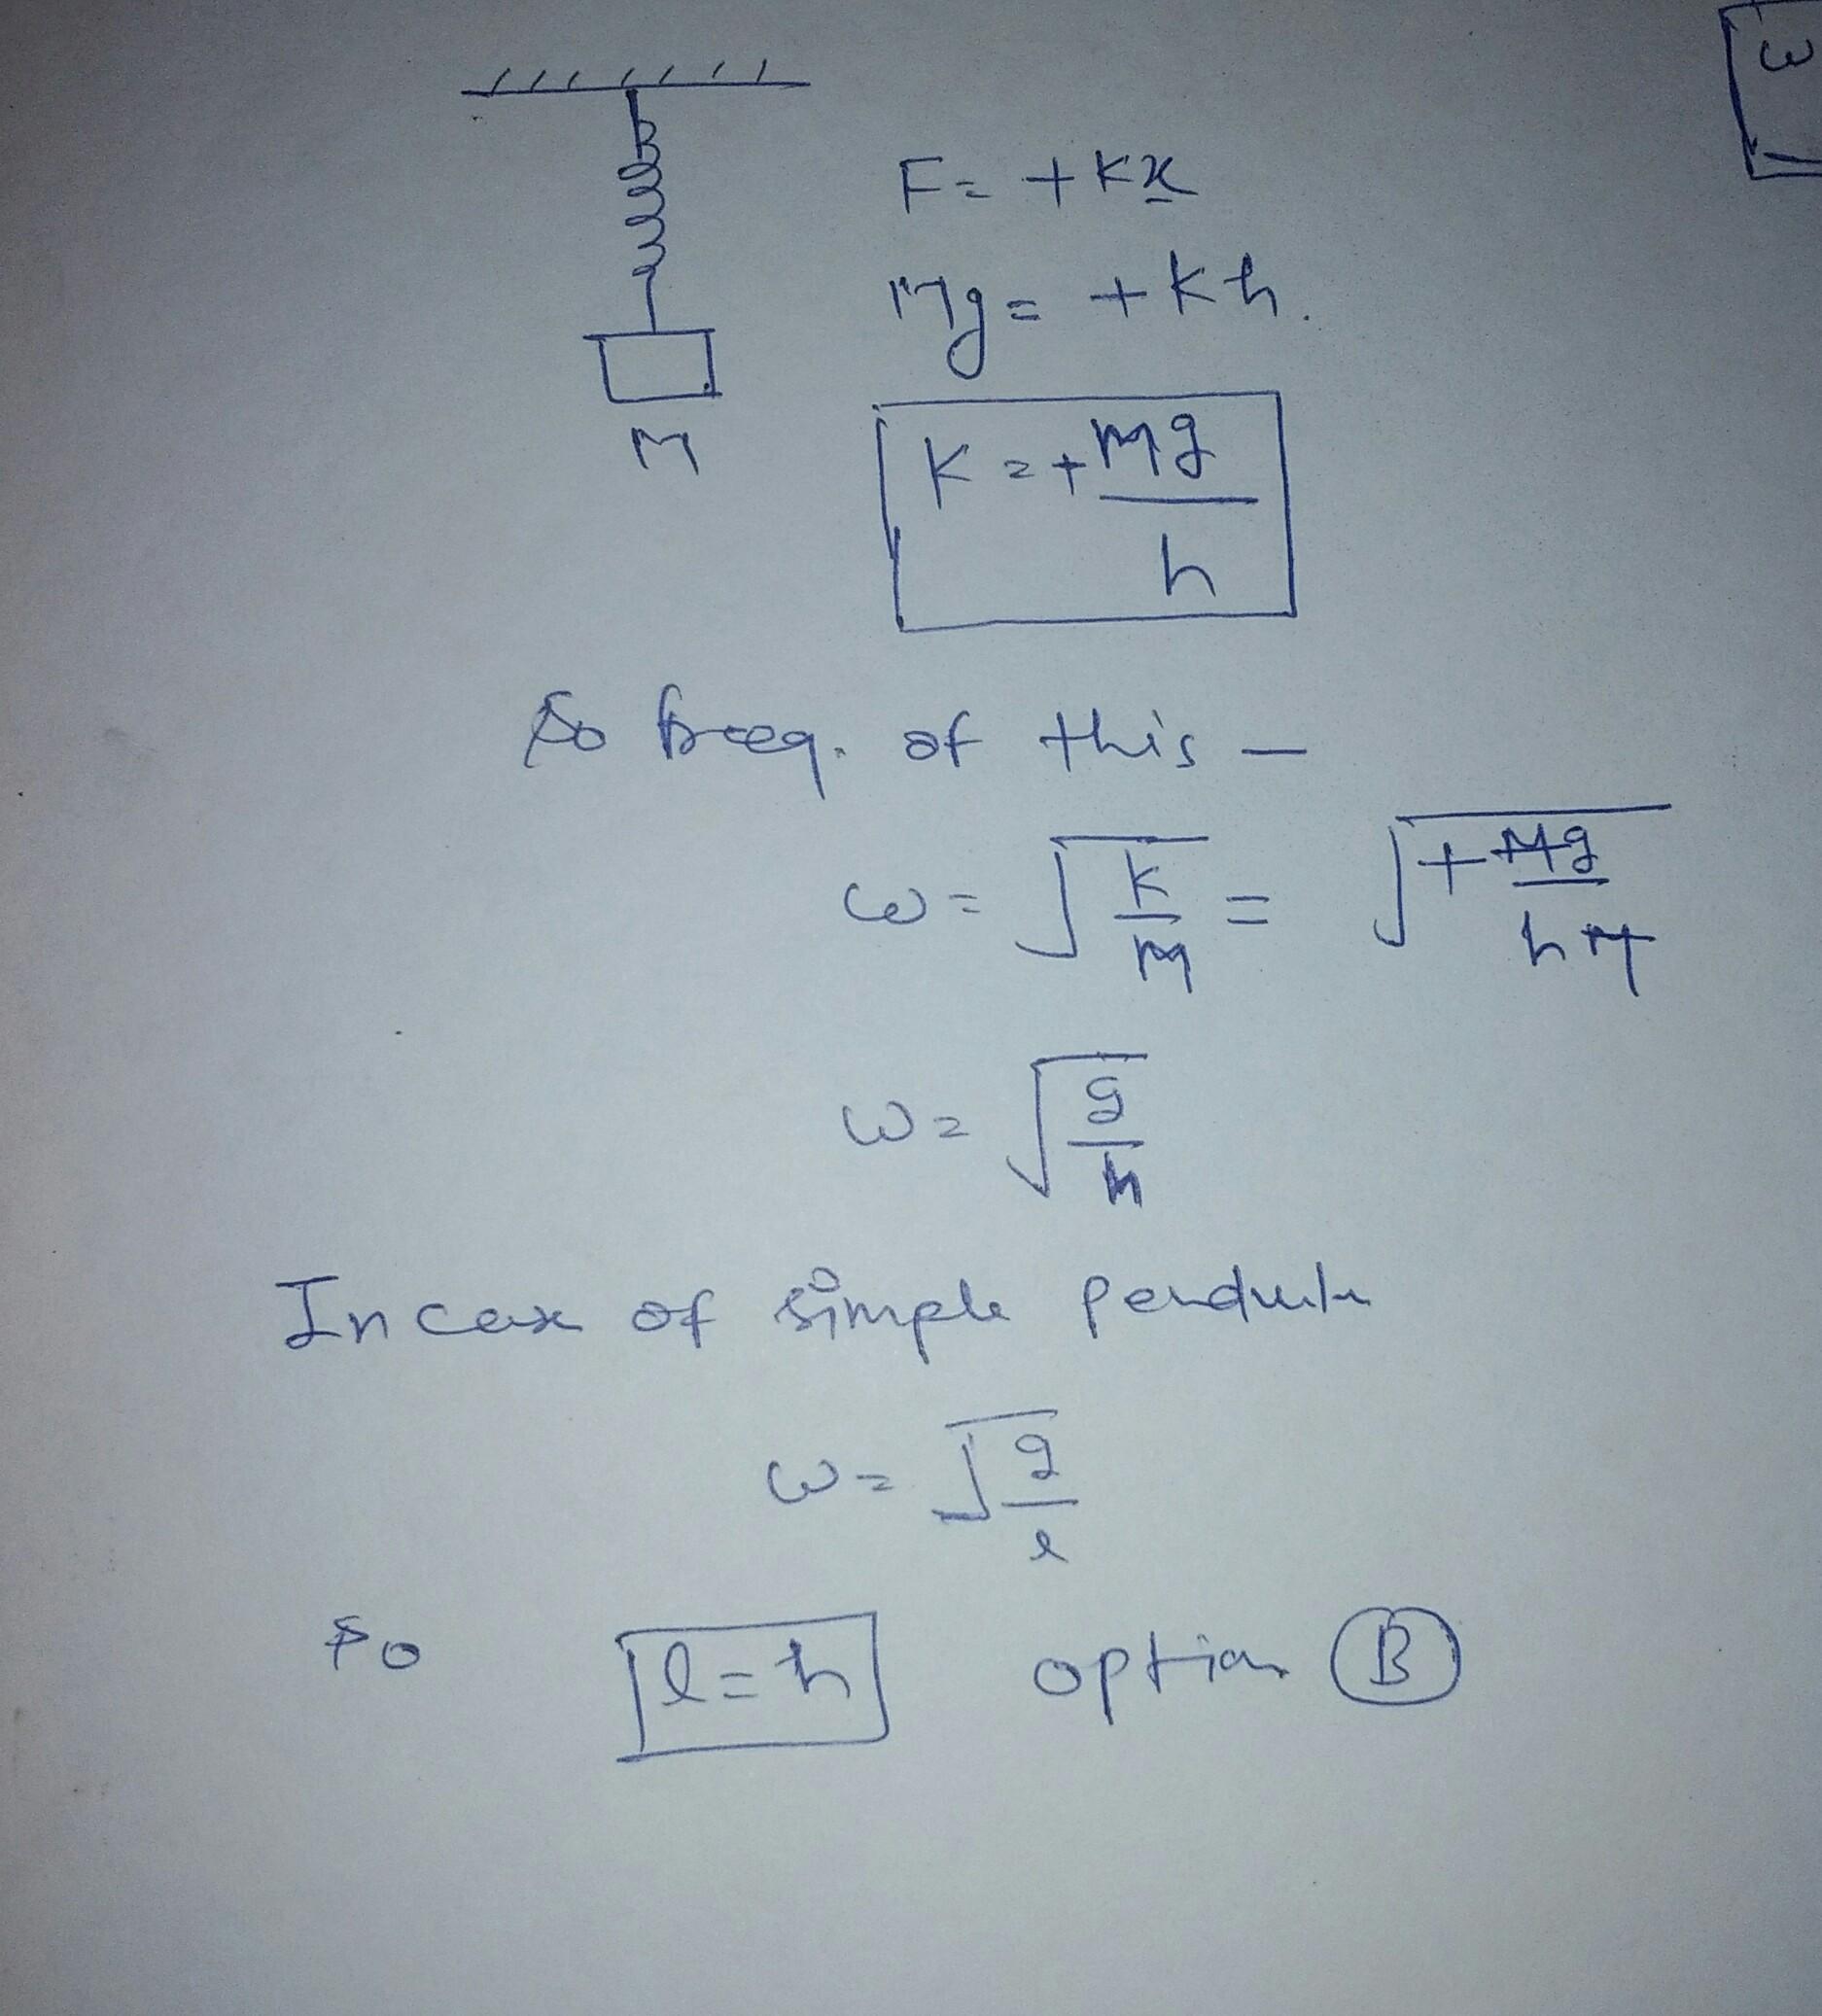 F = + Kx
Mg = + Kh.
M
K = + Mg / h
So freq. of this —
ω = √(K/M) = √(+ Mg / hM)
ω = √(g/h)
In case of simple pendulum
ω = √(g/l)
so l = h option (B)